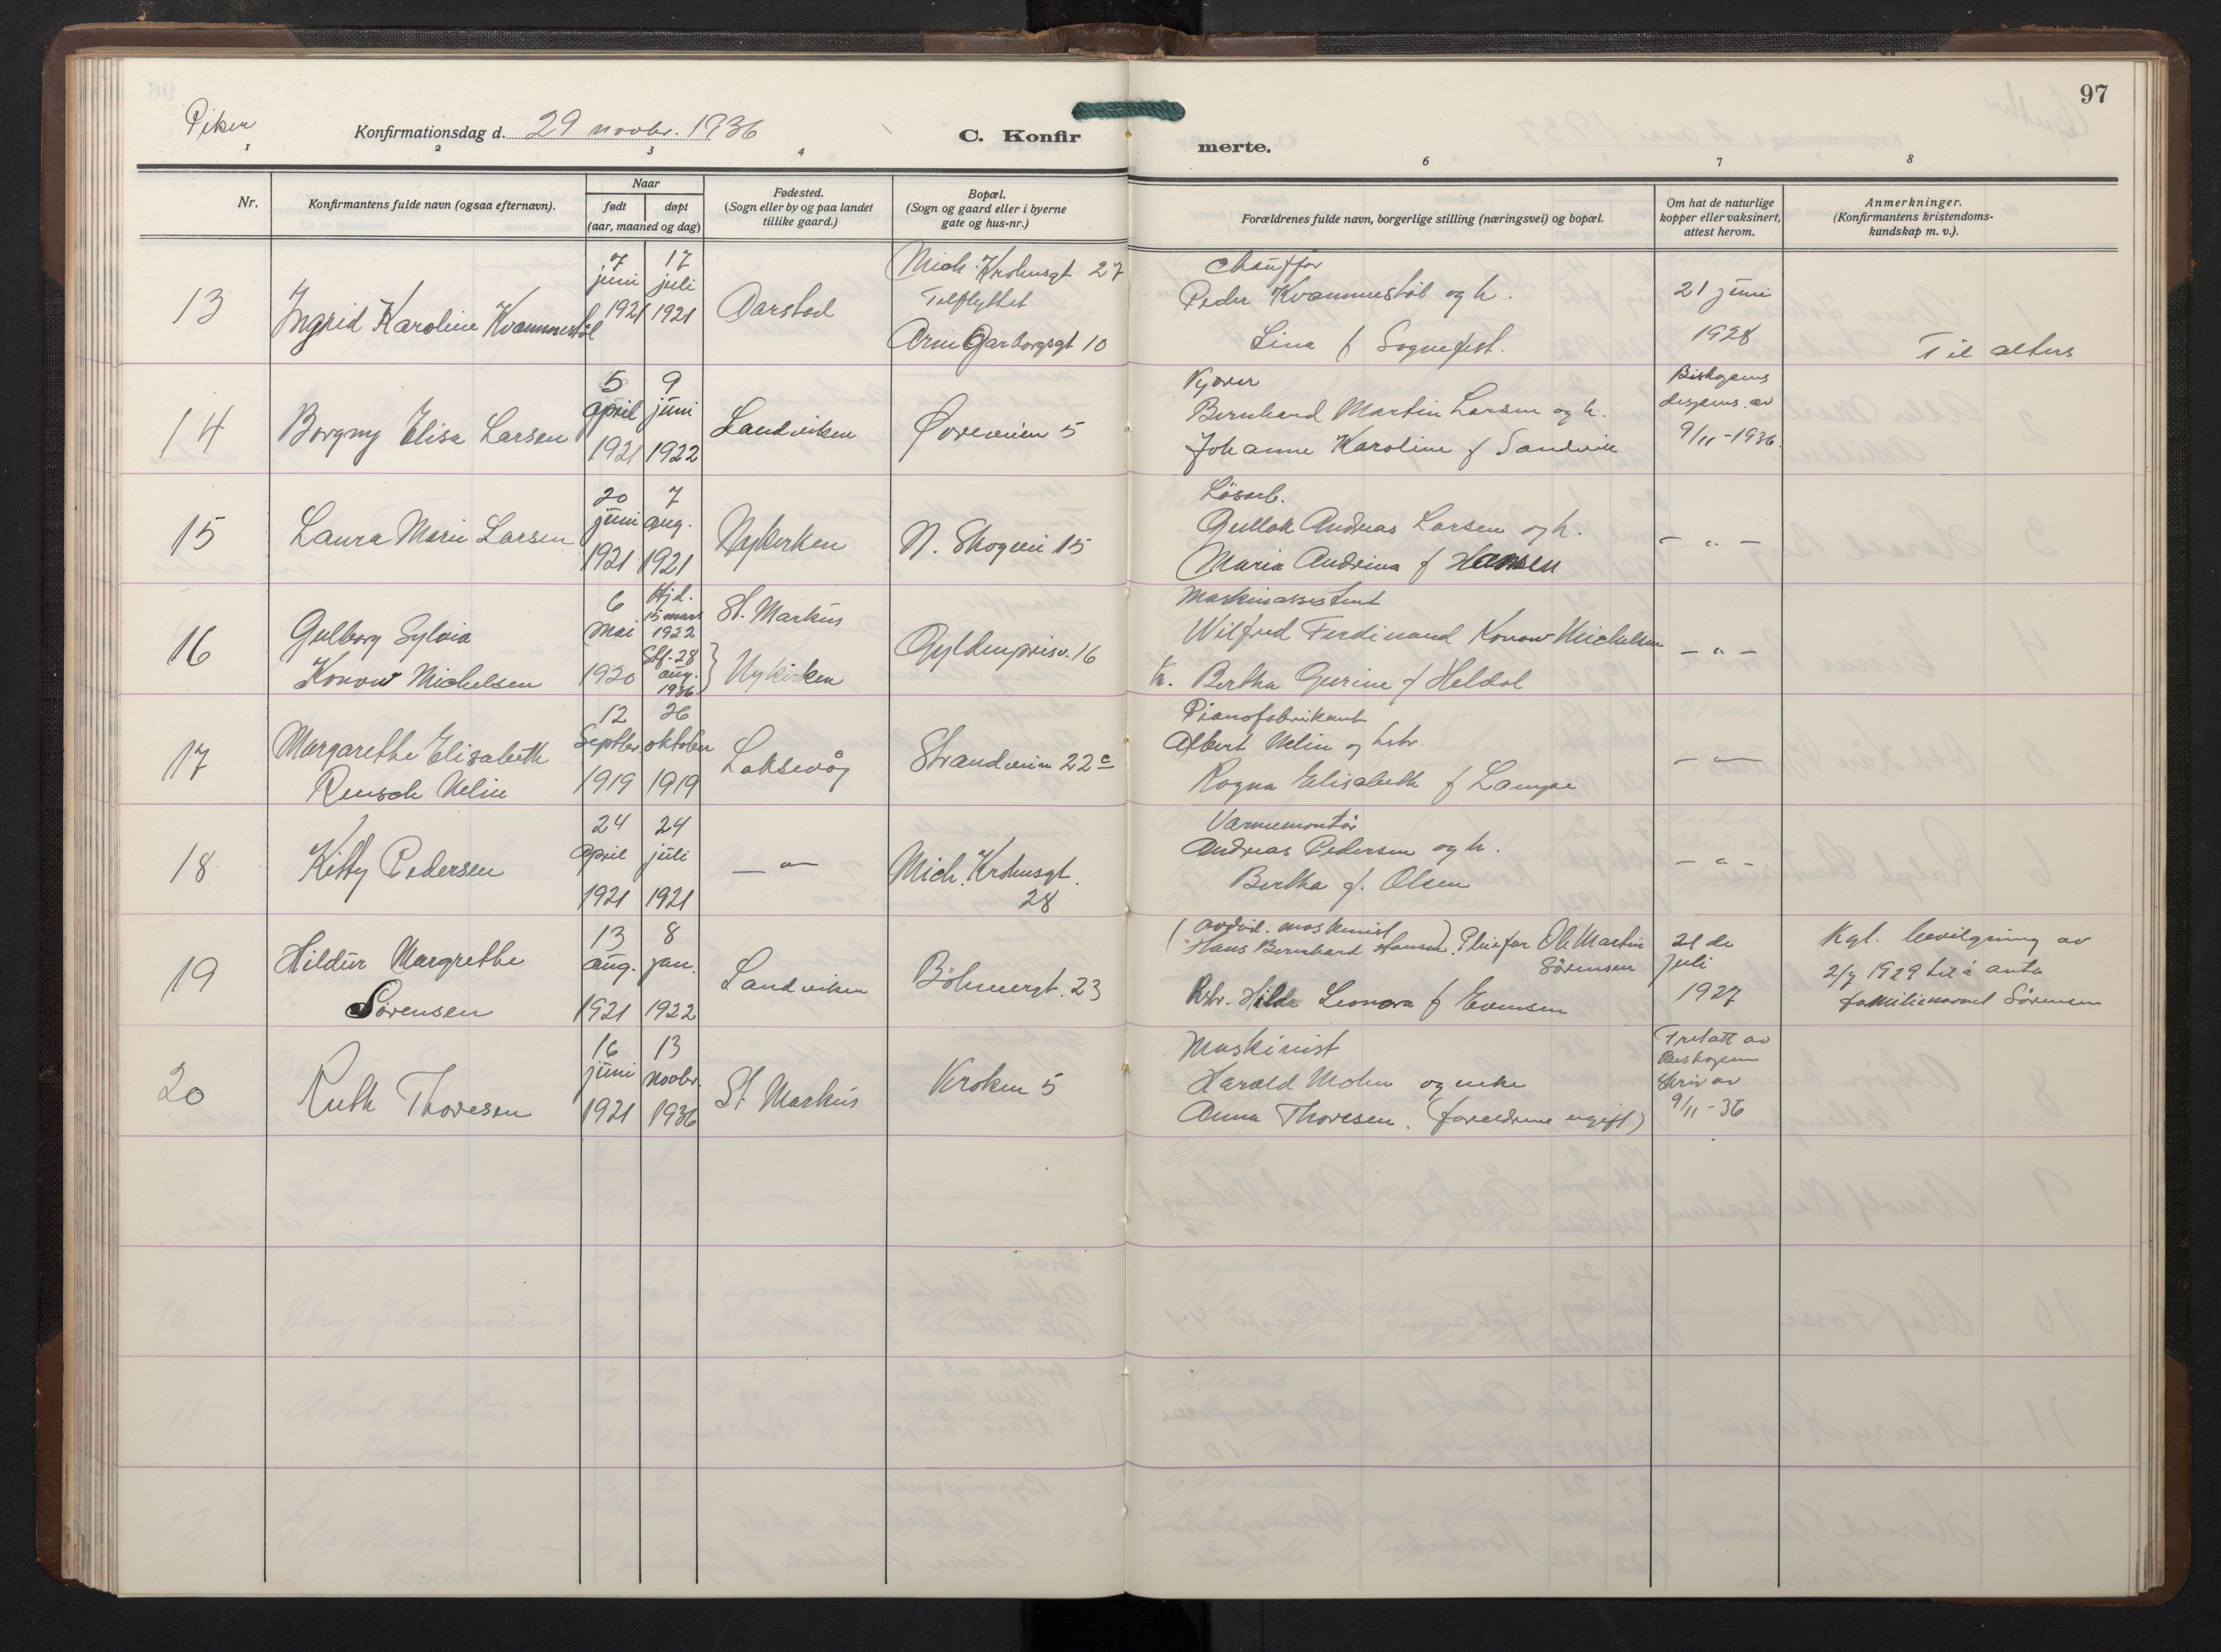 97
Piker
Konfirmationsdag d. 29 novbr. 1936
C. Konfirmerte.
1 2 3 4 6 7 8
Nr.
Konfirmantens fulde navn (ogsaa efternavn).
Naar
født døpt
(aar, maaned og dag)
Fødested.
(Sogn eller by og paa landet
tillike gaard.)
Bopæl.
(Sogn og gaard eller i byerne
gate og hus-nr.)
Forældrenes fulde navn, borgerlige stilling (næringsvei) og bopæl.
Om hat de naturlige
kopper eller vaksinert,
attest herom.
Anmerkninger.
(Konfirmantens kristendoms-
kundskap m. v.).
13
Ingrid Karoline Kvammestøl
7 juni 1921
17 juli 1921
Aarstad
Mich. Krohnsgt 27
Tilflyttet
Arne Garborgsgt 10
Chauffør
Peder Kvammestøl og h.
Lina f Sognefest.
21 juni
1928
Til alters
14
Borgny Elisa Larsen
5 april 1921
9 juni 1922
Sandviken
Øvreveien 5
Kjører
Bernhard Martin Larsen og h.
Johanne Karoline f Sandvik
Biskopens
dispens. av
9/11-1936.
15
Laura Marie Larsen
20 juni 1921
7 aug. 1921
Nykirken
N. Skogvei 15
Løsarb.
Gullak Andreas Larsen og h.
Maria Andrina f Hansen
- " -
16
Gulborg Sylvia
Konow Michelsen
6 mai 1920
Hjd. 15 mars 1922
Stf. 28 aug. 1936
St. Markus
Nykirken
Gyldenprisv. 16
Maskinassistent
Wilfred Ferdinand Konow Michelsen
h. Bertha Gurine f Heldal
- " -
17
Margarethe Elisabeth
Reusch Nelin
12 Septbr. 1919
26 oktober 1919
Laksevåg
Strandveien 22 c
Pianofabrikant
Albert Nelin og hstr.
Ragna Elisabeth f Lampe
- " -
18
Kitty Pedersen
24 april 1921
24 juli 1921
- " -
Mich. Krohnsgt.
28
Varmemontør
Andreas Pedersen og h.
Bertha f. Olsen
- " -
19
Hildur Margrethe
Sørensen
13 aug. 1921
8 jan. 1922
Sandviken
Böhmergt. 23
(avdød. maskinist
Hans Bernhard Hansen). Pleiefar Ole Martin
Sørensen
Hstr. Hilda Leonora f Evensen
21 de
juli
1927
Kgl. bevilgning av
2/7 1929 til å anta
familienavnet Sørensen
20
Ruth Thoresen
16 juni 1921
13 novbr. 1936
St. Markus
Kroken 5
Maskinist
Harald Mohn og enke
Anna Thoresen. (foreldrene ugift)
Fritatt av
Biskopen
skriv av
9/11-36